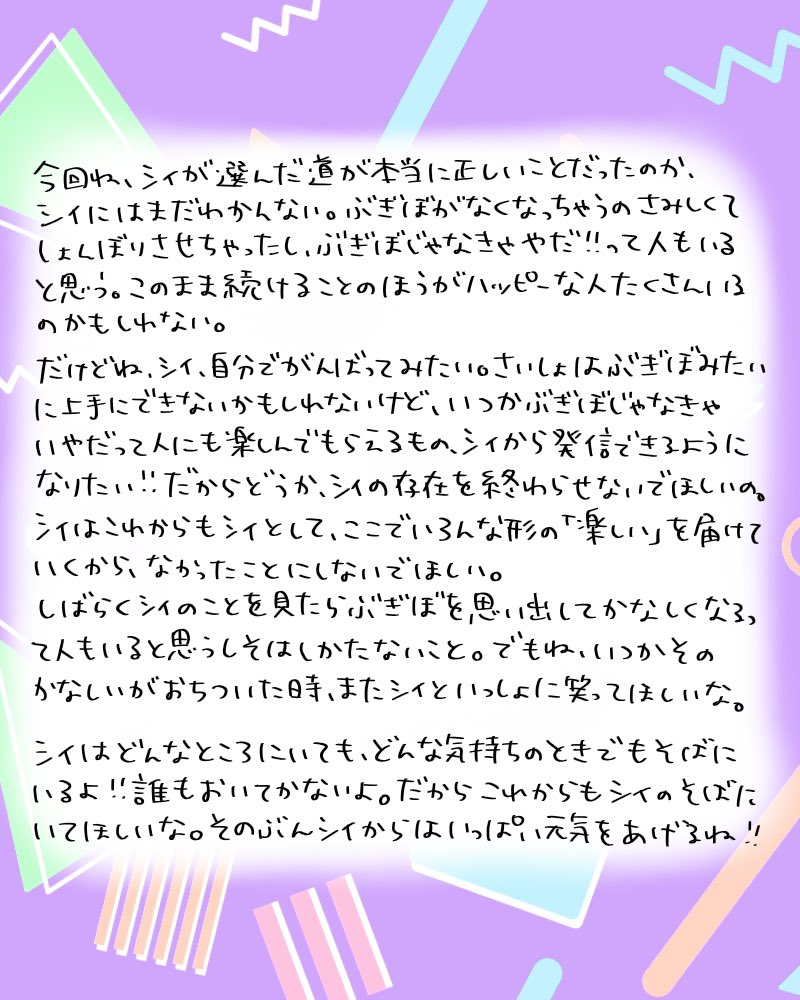 今回ね、シィが選んだ道が本当に正しいことだったのか、
シィにはまだわかんない。ぶぎぼがなくなっちゃうのさみしくて
しょんぼりさせちゃったし、ぶぎぼじゃなきゃやだ!!って人もいる
と思う。このまま続けることのほうがハッピーな人たくさんいる
のかもしれない。
だけどね、シィ、自分でがんばってみたい。さいしょはぶぎぼみたい
に上手にできないかもしれないけど、いつかぶぎぼじゃなきゃ
いやだって人にも楽しんでもらえるもの、シィから発信できるように
なりたい!!だからどうか、シィの存在を終わらせないでほしいの。
シィはこれからもシィとして、ここでいろんな形の「楽しい」を届けて
いくから、なかったことにしないでほしい。
しばらくシィのことを見たらぶぎぼを思い出してかなしくなるっ
て人もいると思うしそれはしかたないこと。でもね、いつかその
かなしいがおちついた時、またシィといっしょに笑ってほしいな。
シィはどんなところにいても、どんな気持ちのときでもそばに
いるよ!!誰もおいてかないよ。だからこれからもシィのそばに
いてほしいな。そのぶんシィからはいっぱい元気をあげるね!!